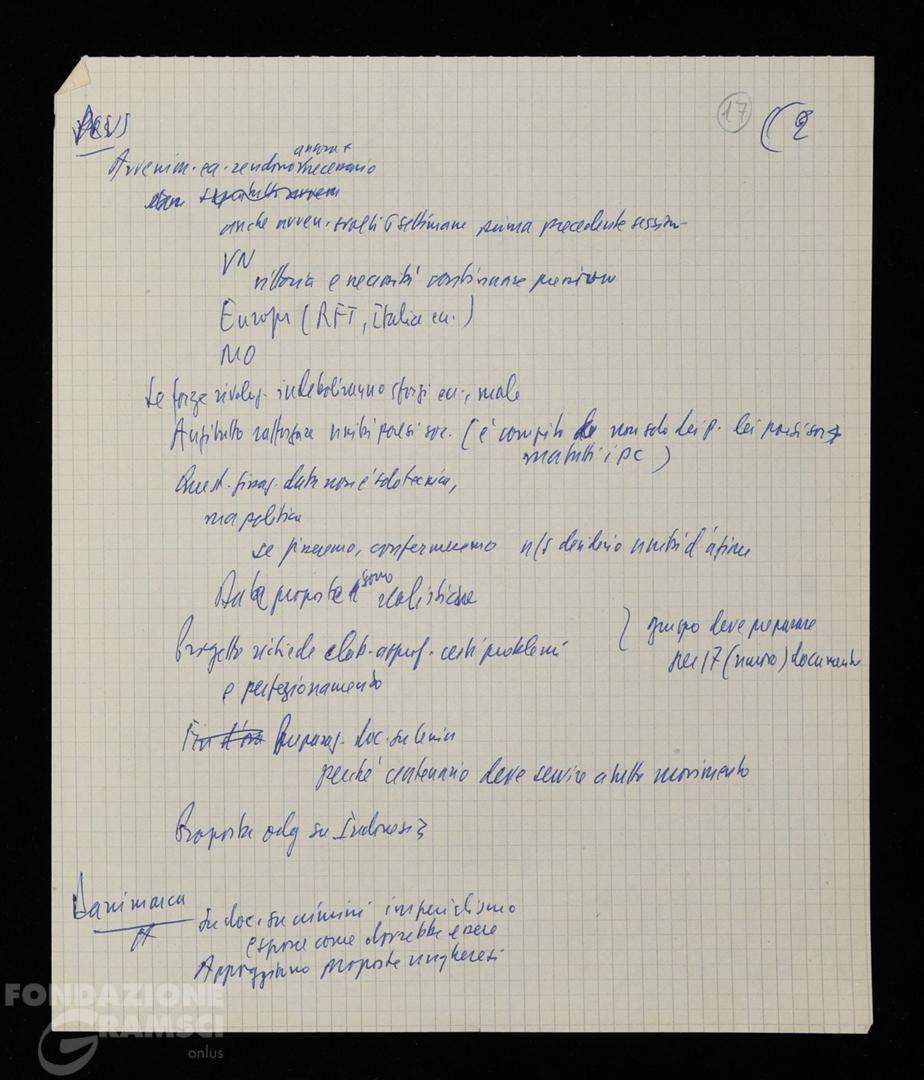 PCUS
17 (2
ancora +
Avvenim. ca. rendono necessario
anche avven. svolti 6 settimane prima precedente session
VN
vittoria e necessità continuare pressione
Europa (RFT, Italia ecc.)
MO
Le forze rivoluz. indeboliranno sforzi ecc., male
Anzitutto rafforzare unità paesi soc. (è compito non solo dei p. dei paesi soc.
ma tutti i PC)
Quest. fissaz. data non è solo tecnica,
ma politica
se fisseremo, confermeremo n/s desiderio unità d'azione
Date proposte sono realistiche
Progetto richiede elab. approf. certi problemi
e perfezionamento
gruppo deve preparare
per 17 (nuovo) documento
Preparaz. doc. su Lenin
perché centenario deve servire a tutto movimento
Proposta odg su Indonesia
Danimarca
su doc. su crimini imperialismo
espone come dovrebbe essere
Appoggiamo proposte ungheresi
FONDAZIONE
GRAMSCI
onlus